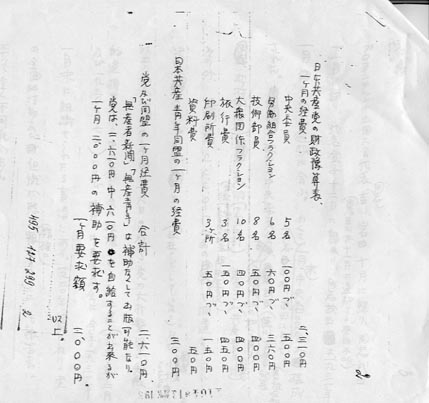 日本共産党の財政豫算表.
一ヶ月の経費 二、三一〇円
中央委員 5名 一〇〇円ヅヽ 五〇〇円
労働組合フラクション 6名 六〇円ヅヽ 三六〇円
技術部員 8名 五〇円ヅヽ 四〇〇円
大衆団体フラクション 10名 四〇円ヅヽ 四〇〇円
旅行費 3名 一五〇円ヅヽ 四五〇円
印刷所費 3ヶ所 五〇円ヅヽ 一五〇円
資料費 五〇円
日本共産青年同盟の一ヶ月の経費 三〇〇円
党及同盟の一ヶ月経費 合計 二、六一〇円
「無産者新聞」「無産青年」は補助なくして出版可能なり.
党は、二、六一〇円中 六一〇円を自給することが出来るが
一ヶ月 二、〇〇〇円の補助を要求す。
一ヶ月要求額 二、〇〇〇円.
495 127 299 2